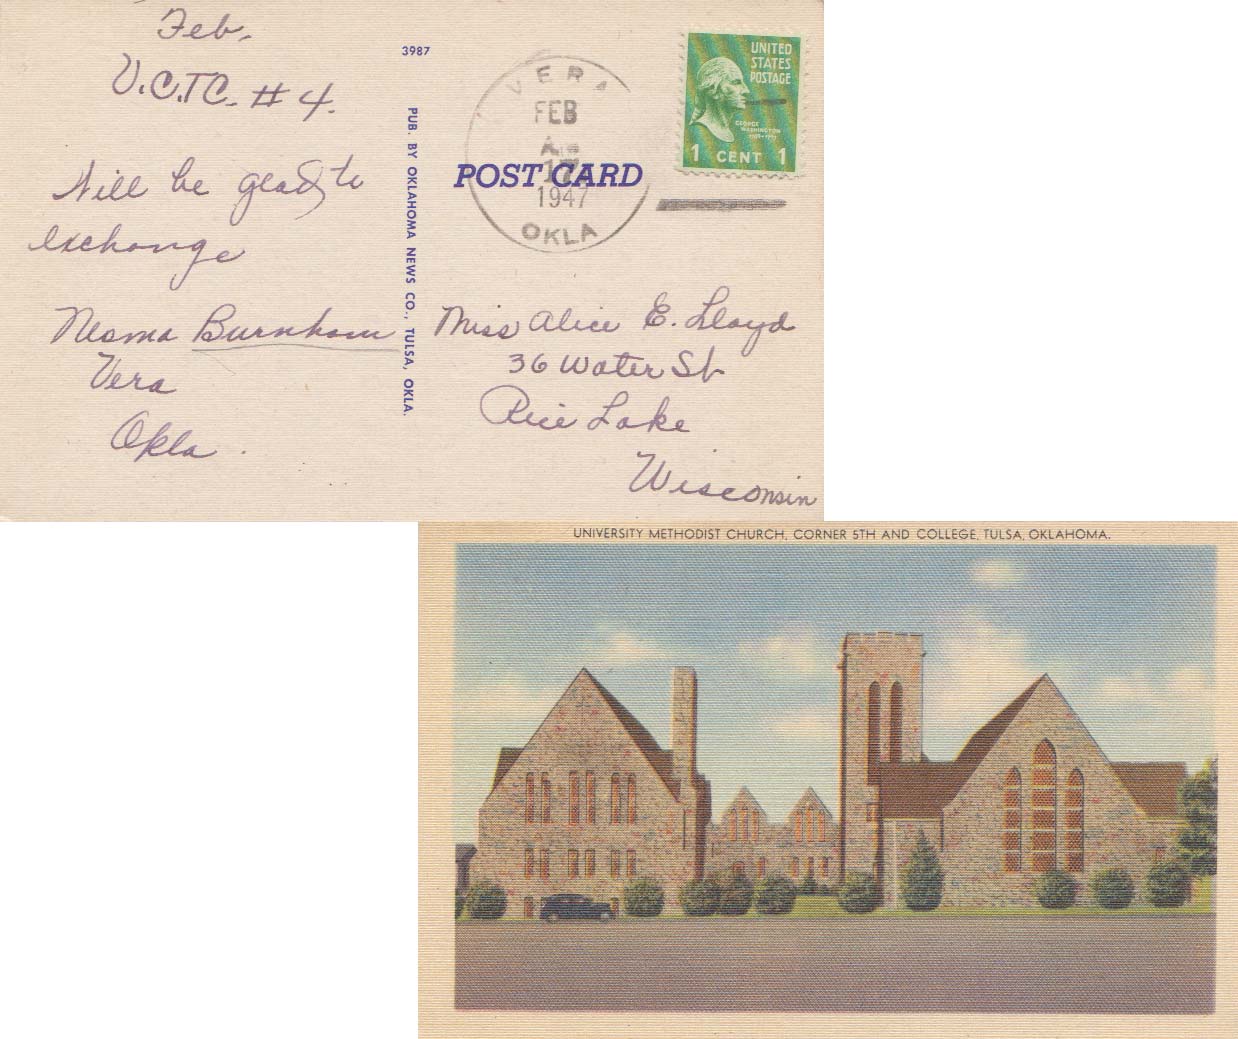 Feb.
V.C.T.C. # 4.
Will be glad to
exchange
Burnham
Vera
Okla.
3987
PUB. BY OKLAHOMA NEWS CO., TULSA, OKLA.
POST CARD
VERA
FEB
17
1947
OKLA
UNITED
STATES
POSTAGE
GEORGE
WASHINGTON
1 CENT 1
Miss Alice E. Lloyd
36 Water St
Rice Lake
Wisconsin
UNIVERSITY METHODIST CHURCH, CORNER 5TH AND COLLEGE, TULSA, OKLAHOMA.